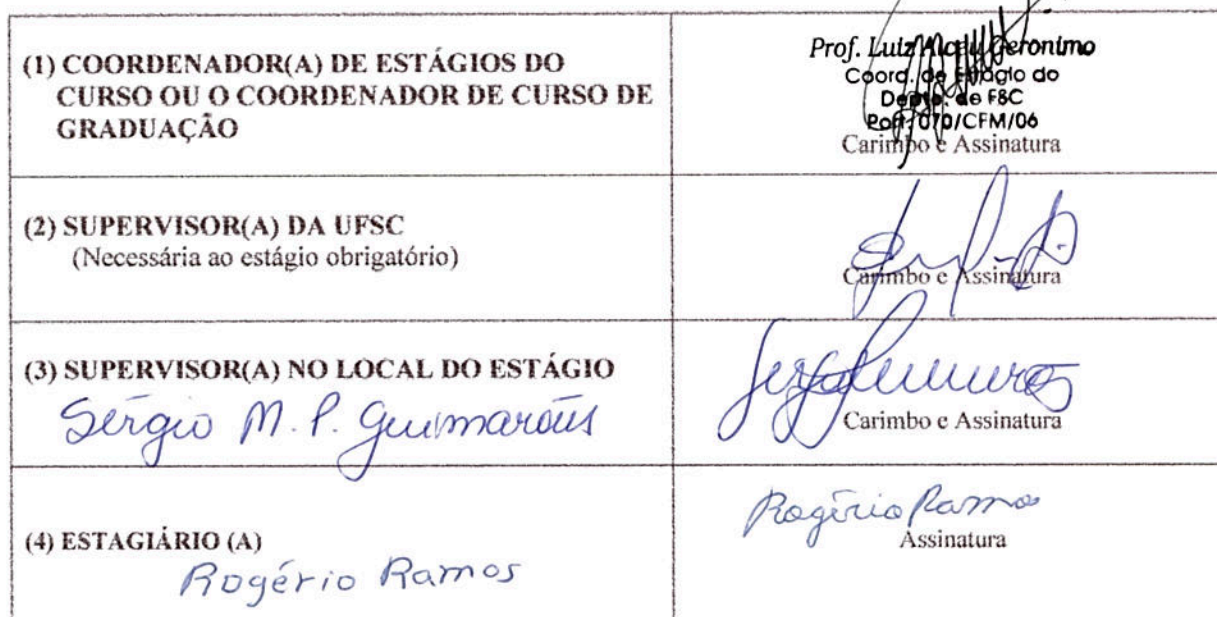 (1) COORDENADOR(A) DE ESTÁGIOS DO
CURSO OU O COORDENADOR DE CURSO DE
GRADUAÇÃO
Prof. Luiz Alceu Geronimo
Coord. de Estágio do
Depto. de FSC
Port. 070/CFM/06
Carimbo e Assinatura
(2) SUPERVISOR(A) DA UFSC
(Necessária ao estágio obrigatório)
Carimbo e Assinatura
(3) SUPERVISOR(A) NO LOCAL DO ESTÁGIO
Sérgio M. P. Guimarães
Carimbo e Assinatura
(4) ESTAGIÁRIO (A)
Rogério Ramos
Rogério Ramos
Assinatura